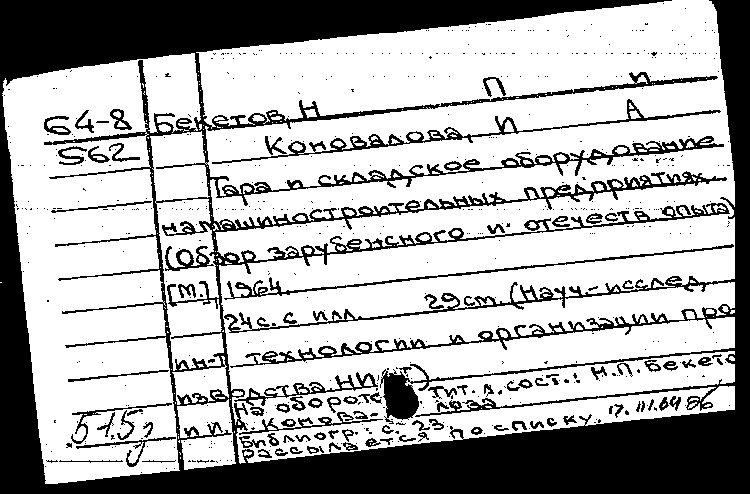 64-8 Бекетов, Н П
562 Коновалова, И А
Тара и складское оборудование
на машиностроительных предприятиях.
(Обзор зарубежного и отечеств опыта)
[М.], 1964.
24 с. с илл. 29 см. (Науч.-исслед.
ин-т технологии и организации про-
изводства НИ
На обороте тит. л. сост.: Н.П. Бекетов
и И.А. Коновалова
Библиогр.: с. 23
Рассылается по списку. 17.III.64